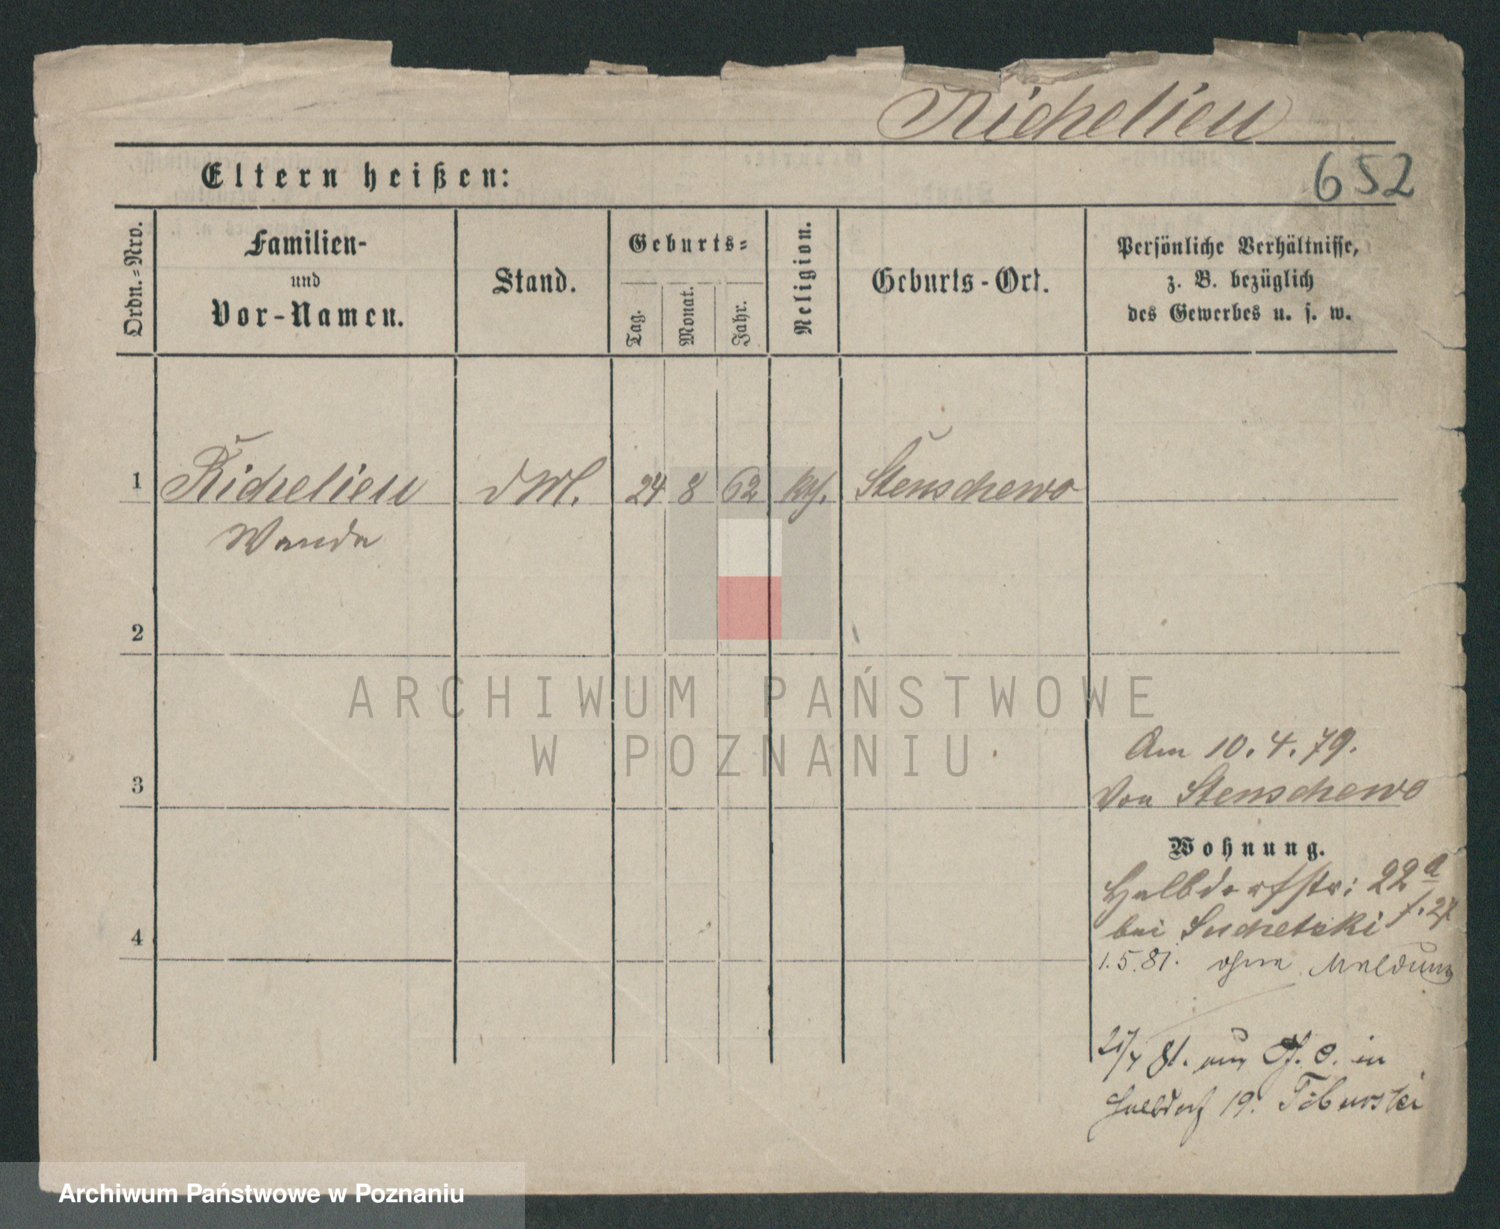 Richelieu
652
Eltern heißen:
Ordn.-Nro.
Familien-
und
Vor-Namen.
Stand.
Geburts-
Tag.
Monat.
Jahr.
Religion.
Geburts-Ort.
Persönliche Verhältnisse,
z. B. bezüglich
des Gewerbes u. s. w.
1 Richelieu 24 8 62 Stenschewo
Wanda
2
ARCHIWUM PAŃSTWOWE
W POZNANIU
Am 10.4.79.
3 Von Stenschewo
Wohnung.
Halbdorfstr: 22a
bei Suchetzki
4
1.5.81. ohne Meldung
81. in
Halbdorf 19.
Archiwum Państwowe w Poznaniu